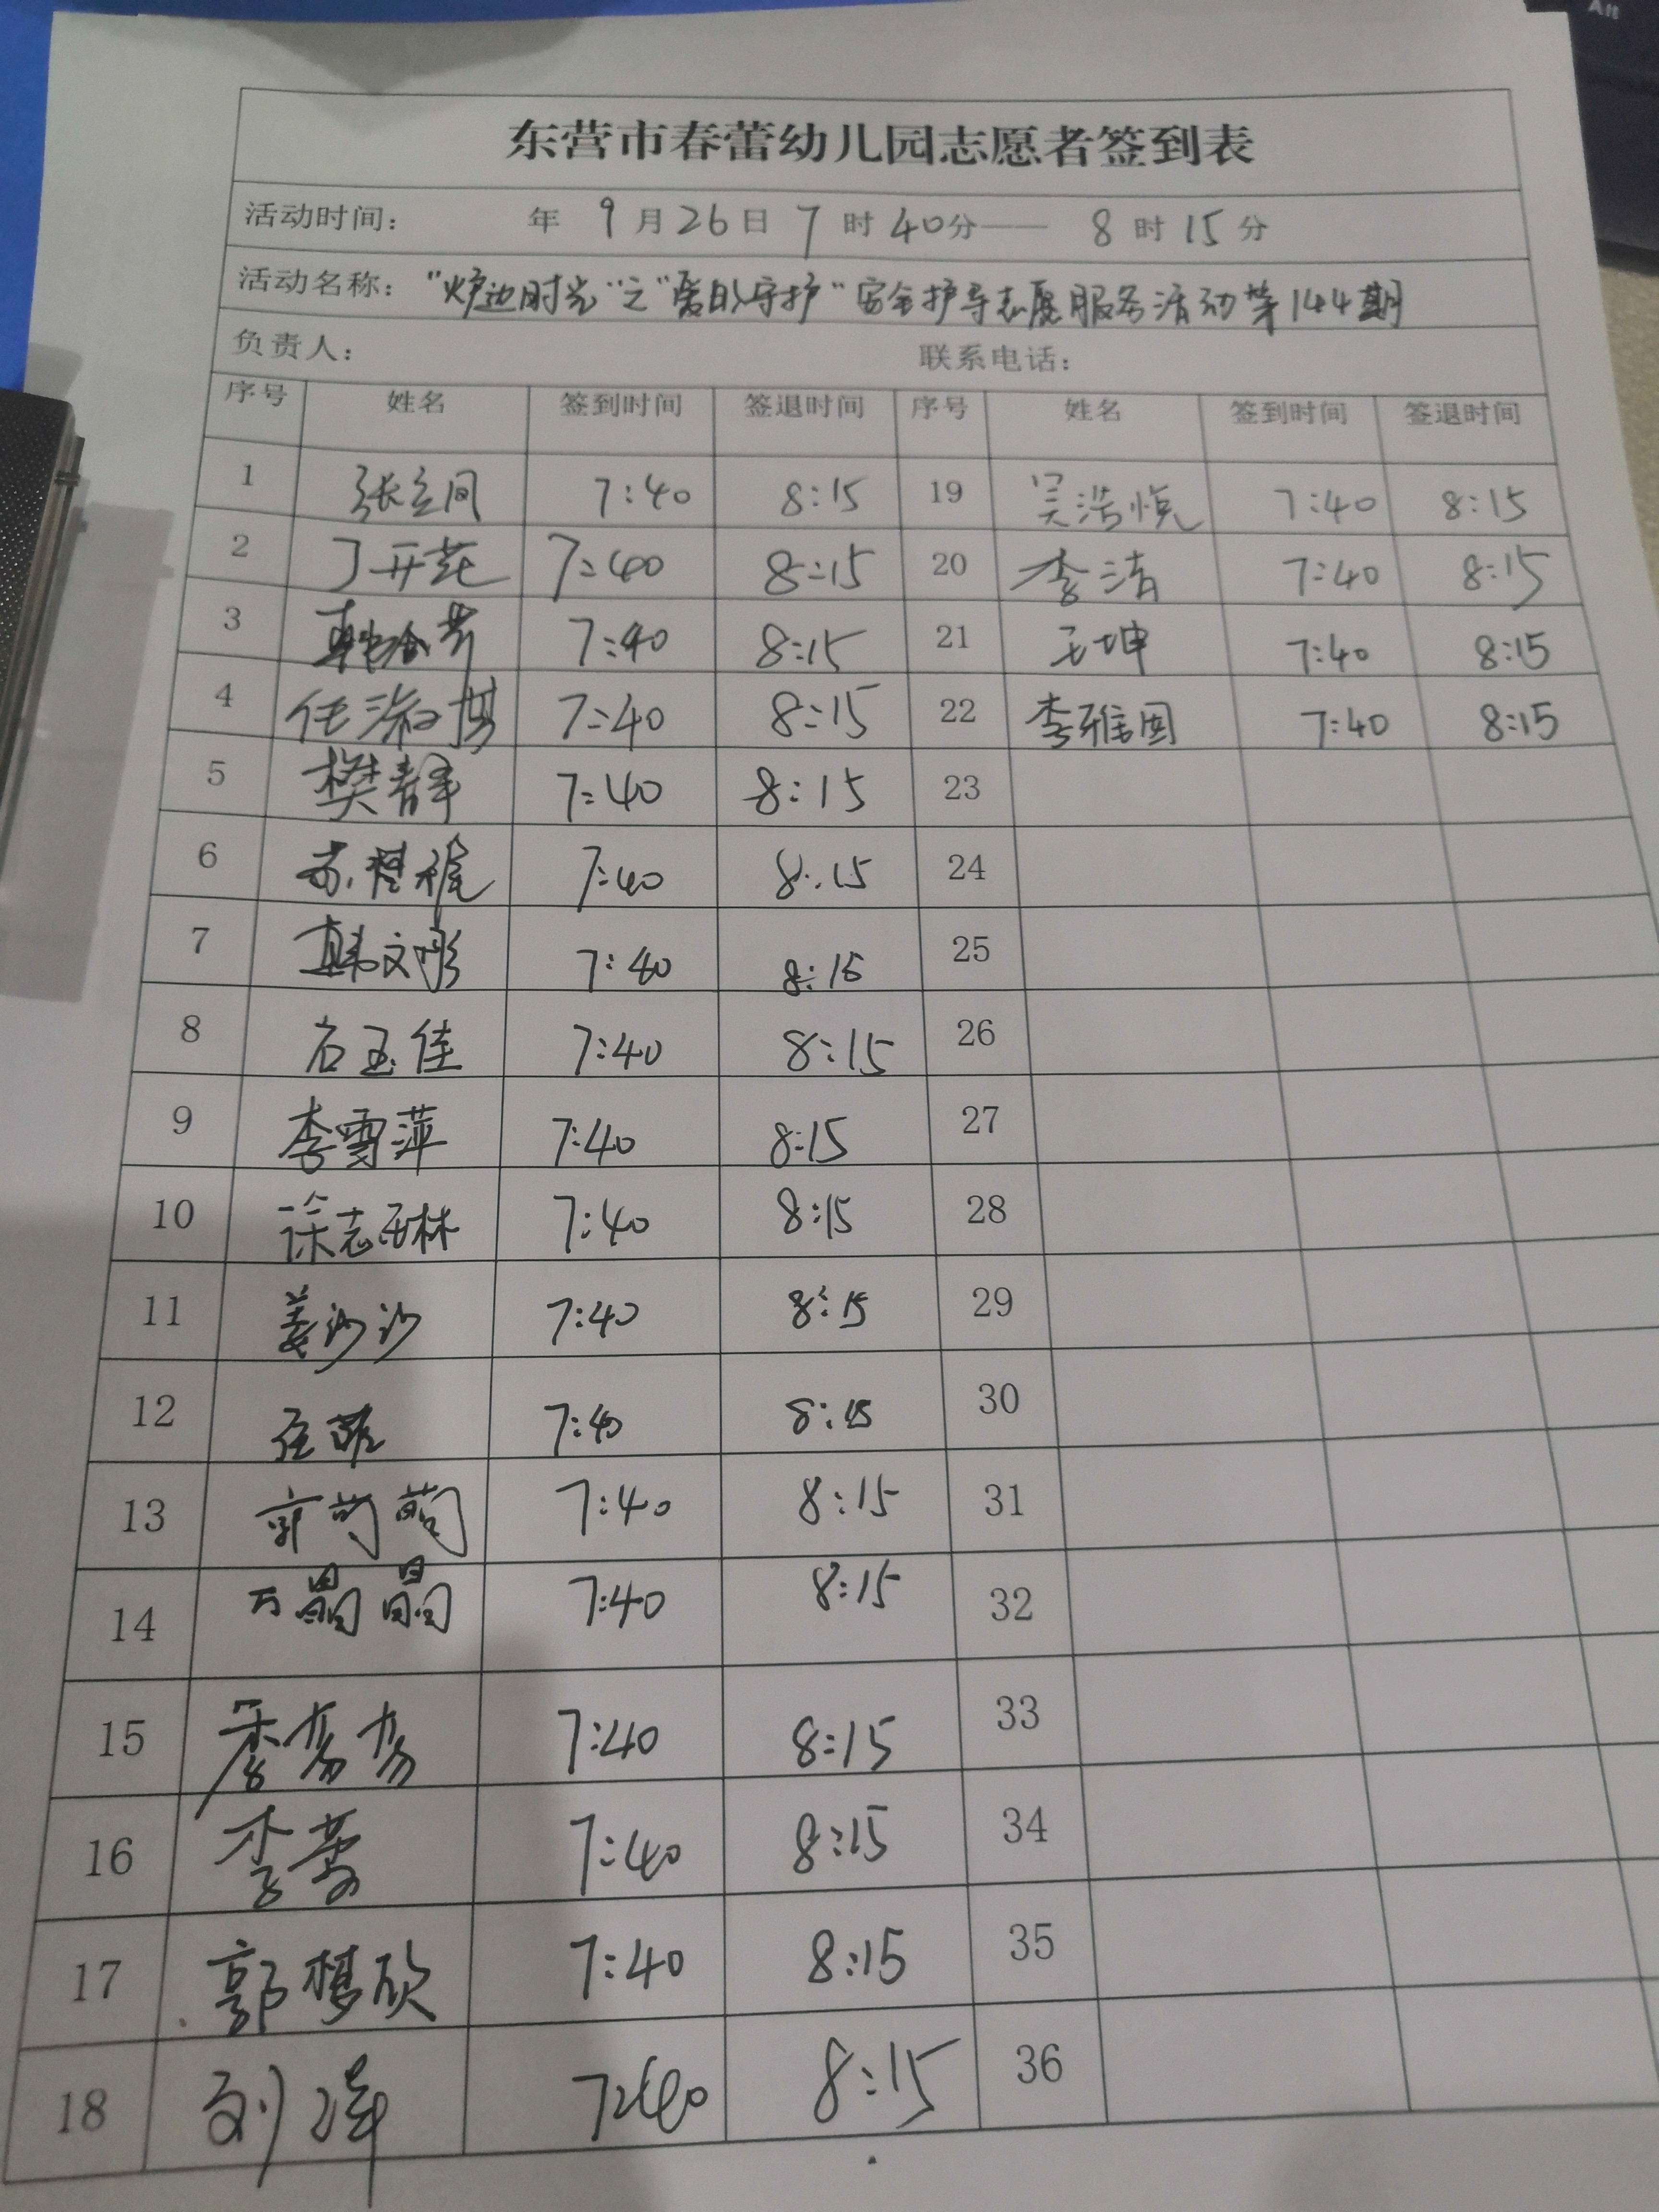 Alt
东营市春蕾幼儿园志愿者签到表
活动时间： 年 9 月 26 日 7 时 40 分—— 8 时 15 分
活动名称："炉边时光"之"爱的守护"安全护导志愿服务活动第144期
负责人： 联系电话：
序号 姓名 签到时间 签退时间 序号 姓名 签到时间 签退时间
1 7:40 8:15 19 吴浩悦 7:40 8:15
2 丁开花 7:40 8:15 20 李清 7:40 8:15
3 7:40 8:15 21 王坤 7:40 8:15
4 任淑棋 7:40 8:15 22 李雅团 7:40 8:15
5 樊静 7:40 8:15 23
6 7:40 8:15 24
7 韩文彤 7:40 8:15 25
8 石玉佳 7:40 8:15 26
9 李雪萍 7:40 8:15 27
10 徐志琳 7:40 8:15 28
11 姜沙沙 7:40 8:15 29
12 7:40 8:15 30
13 郭 7:40 8:15 31
14 万晶晶 7:40 8:15 32
15 7:40 8:15 33
16 李 7:40 8:15 34
17 郭梦欣 7:40 8:15 35
18 刘 7:40 8:15 36